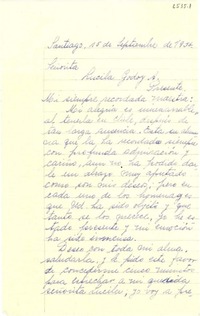 Santiago, 15 de Septiembre de 1954
Señorita
Lucila Godoy A.
Presente.
Mi siempre recordada maestra:
Mi alegría es inenarrable,
al tenerla en Chile, después de
tan larga ausencia. Esta su alum-
na que la ha recordado siempre
con profunda admiración y
cariño, aun no ha podido dar-
le un abrazo muy apretado
como son mis deseos; pero en
cada uno de los homenajes
que Ud. ha sido objeto y que
tanto se los quiere, yo he es-
tado presente, y mi emoción
ha sido inmensa.
Deseo con toda mi alma,
saludarla, y le pido este favor
de concederme unos minutos
para estrechar a mi querida
señorita Lucila, yo voy a